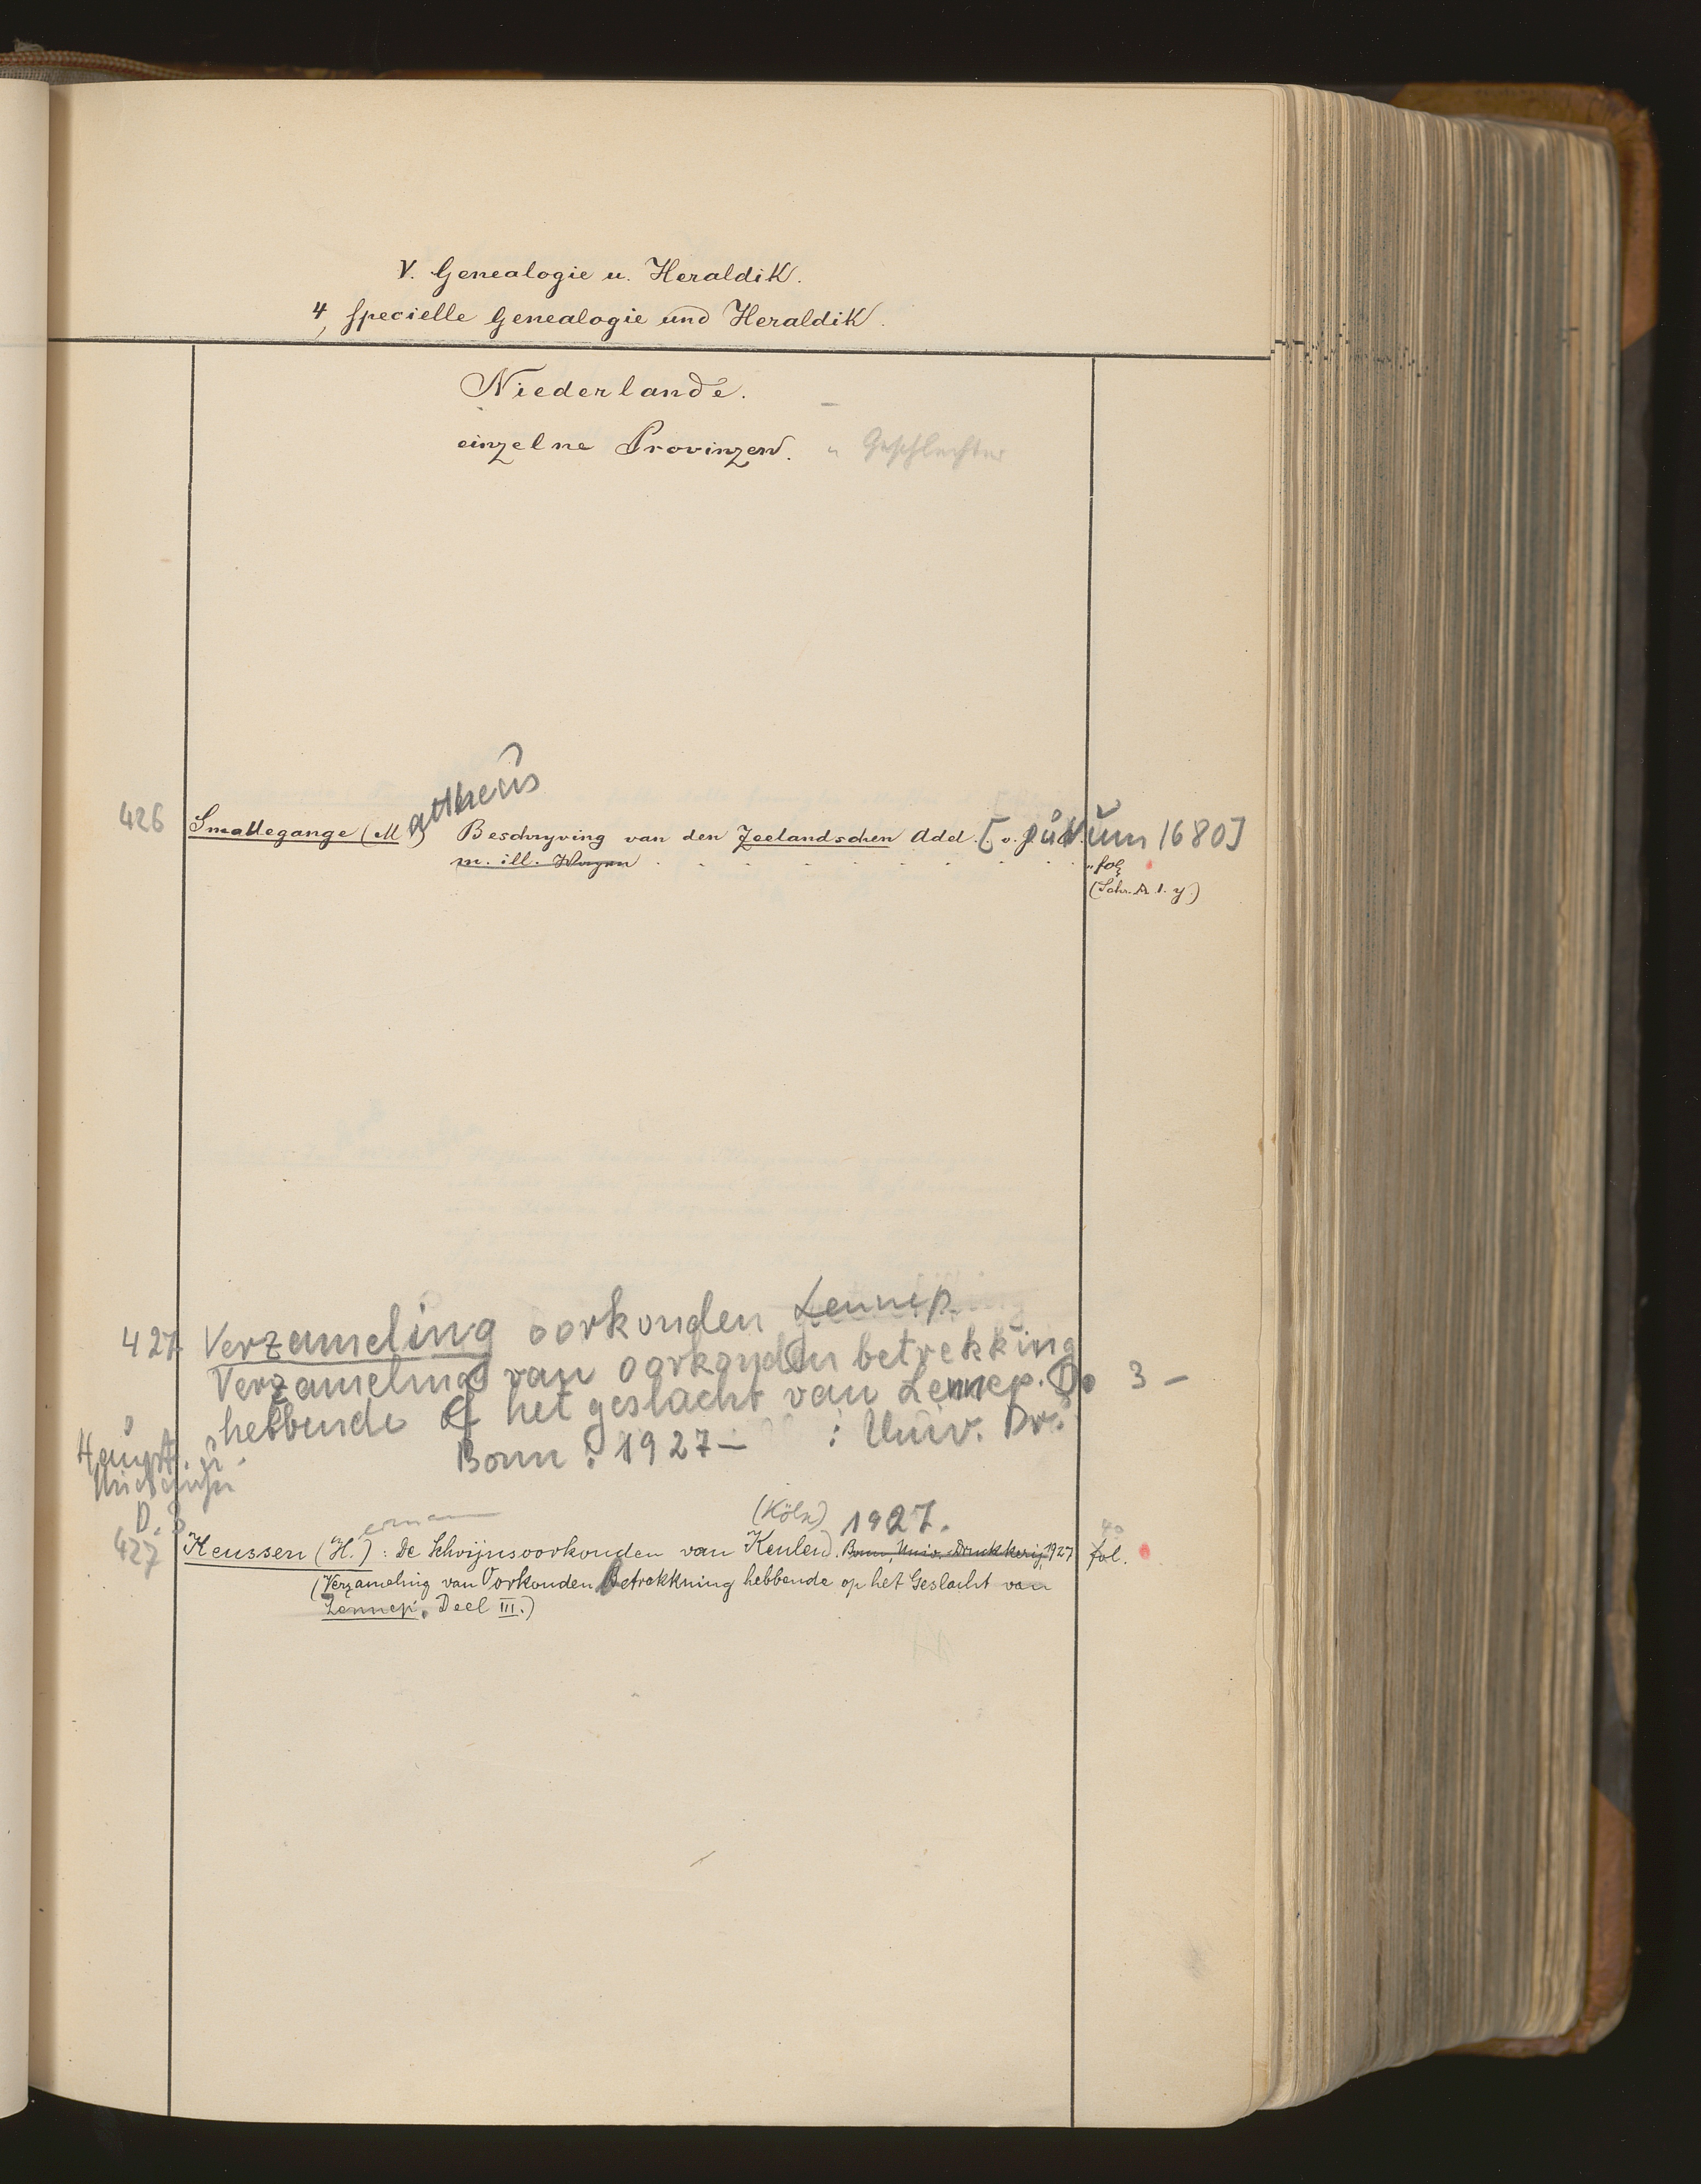 V. Genealogie u. Heraldik.
4, specielle Genealogie und Heraldik.
Niederlande.
einzelne Provinzen. u Geschlechter
426 Smallegange (Mattheüs) Beschryving van den Zeelandschen Adel. [o. J. u. um 1680]
m. ill. Wapen . . . . . . . . "fol.
(Schr. A. 1. y.)
427 Verzameling oorkonden Lennep.
Verzameling van oorkonden betrekking
hebbende op het geslacht van Lennep. D. 3 —
Bonn: 1927— : Univ. Dr.
Haupt. u.
D. 3
427 Keussen (Hermann): De Schrijnsoorkonden van Keulen. (Köln) 1927. Bonn, Univ. Drukkerij, 1927 4° fol.
(Verzameling van Oorkonden Betrekkning hebbende op het Geslacht van
Lennep, Deel III.)